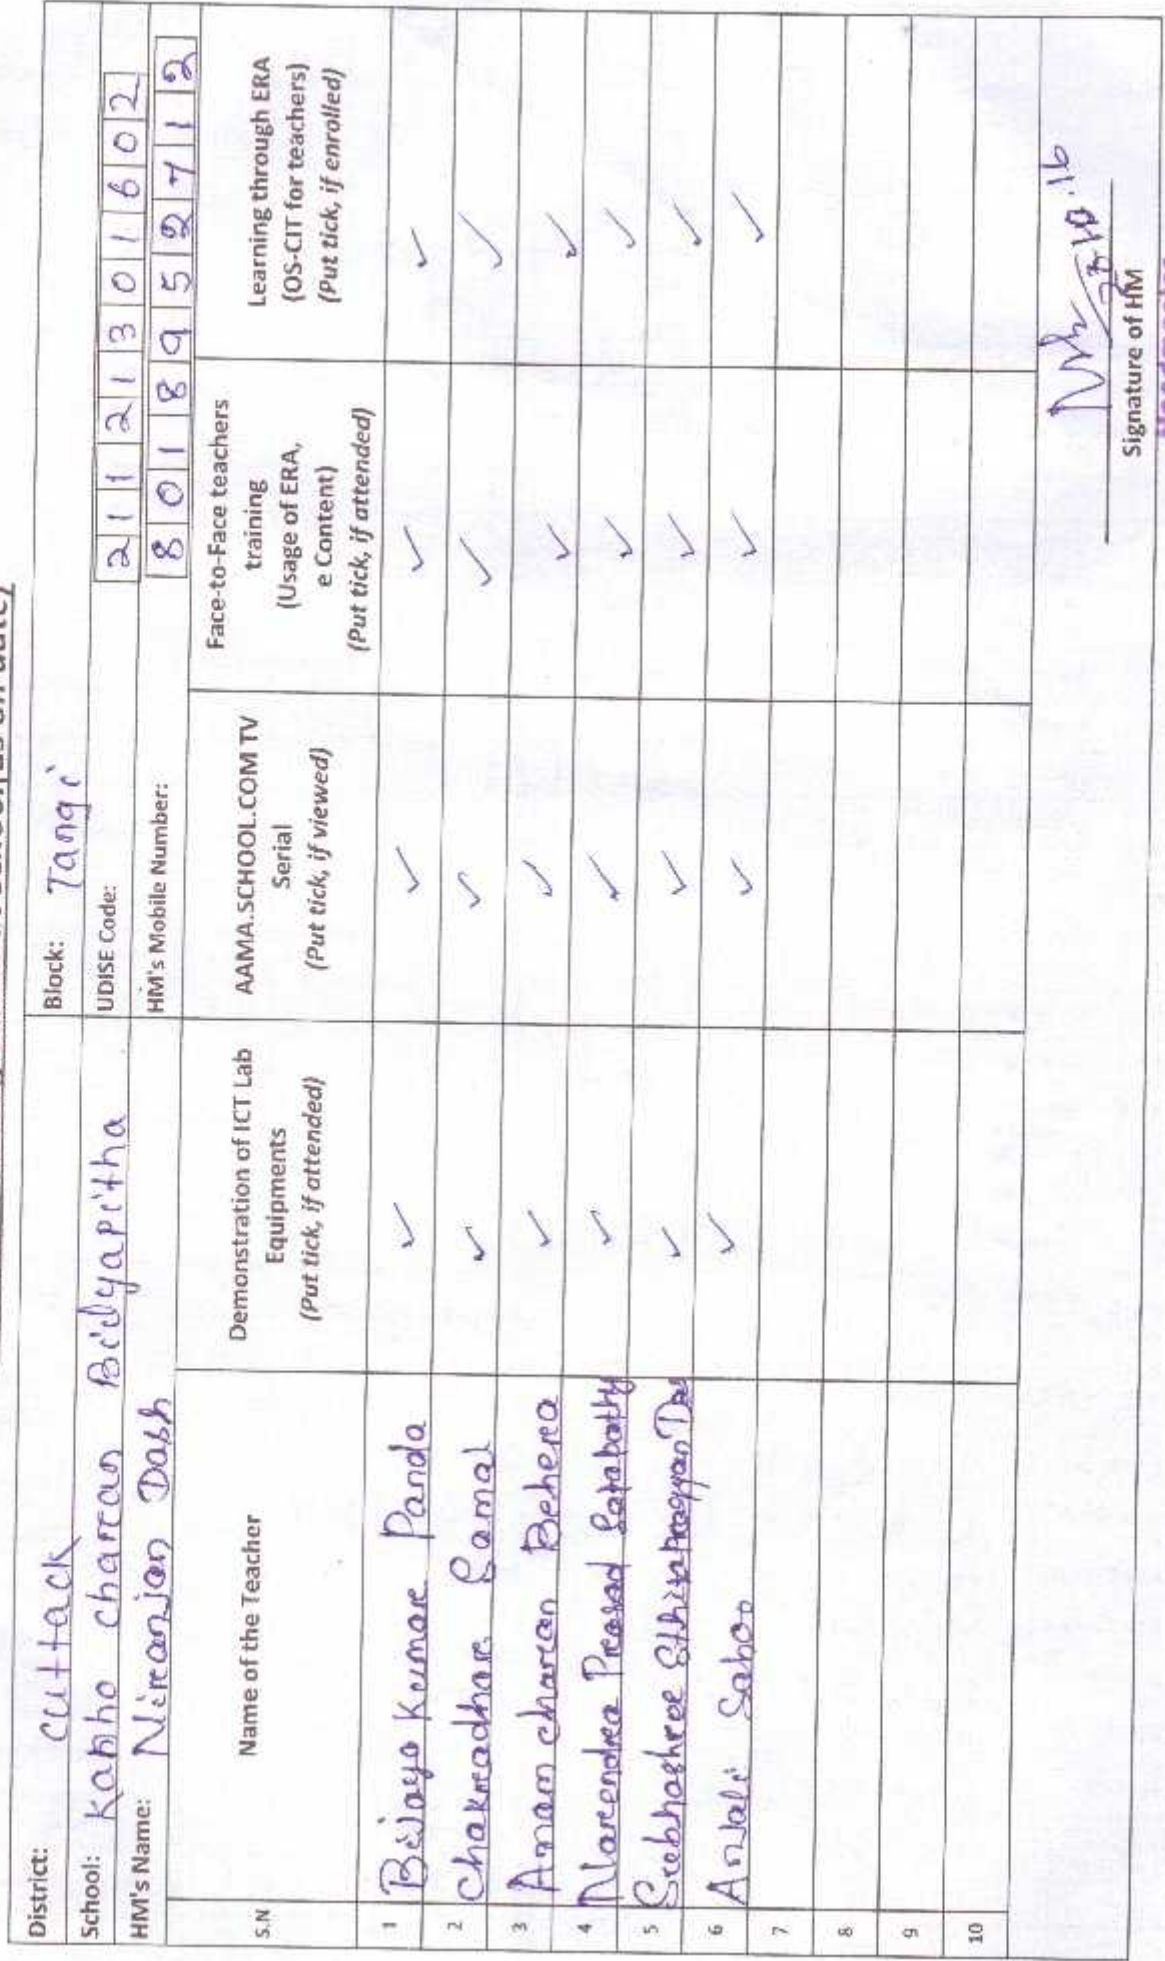 District: Cuttack Block: Tangi
School: Kanho charan Bidyapitha UDISE Code: 21121301602
HM's Name: Niranjan Dash HM's Mobile Number: 8018952712
S.N Name of the Teacher Demonstration of ICT Lab Equipments (Put tick, if attended) AAMA.SCHOOL.COM TV Serial (Put tick, if viewed) Face-to-Face teachers training (Usage of ERA, e Content) (Put tick, if attended) Learning through ERA (OS-CIT for teachers) (Put tick, if enrolled)
1 Bijaya Kumar Panda ✓ ✓ ✓ ✓
2 Chakradhar Samal ✓ ✓ ✓ ✓
3 Anam charan Behera ✓ ✓ ✓ ✓
4 Narendra Prasad Satapathy ✓ ✓ ✓ ✓
5 Subhashree Sthitapragyan Das ✓ ✓ ✓ ✓
6 Anjali Sahoo ✓ ✓ ✓ ✓
7
8
9
10
Signature of HM